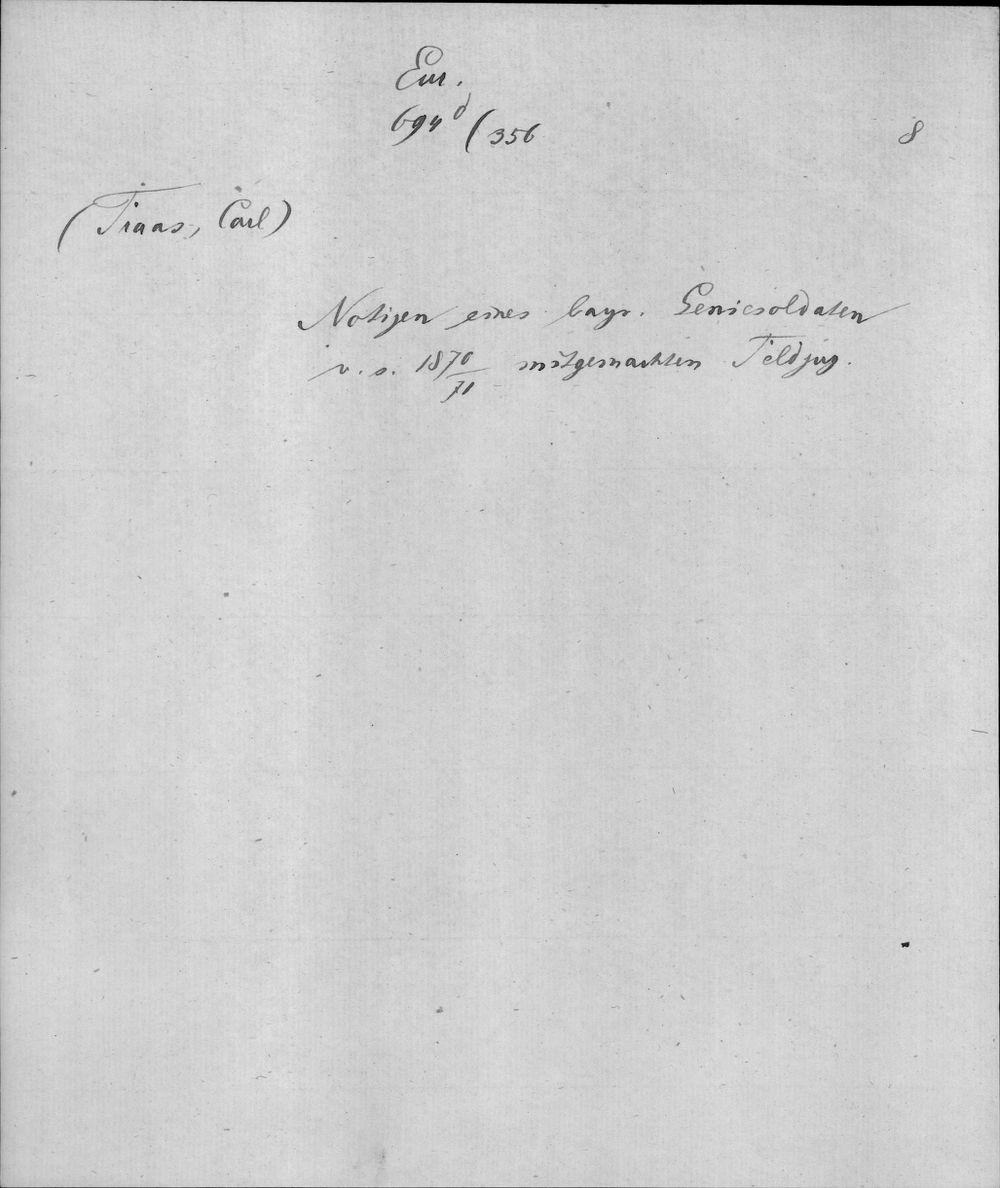 Eur.
694 d/356
8
(Fraas, Carl)
Notizen eines bayr. Geniesoldaten
v. s. 1870/71 mitgemachten Feldzug.